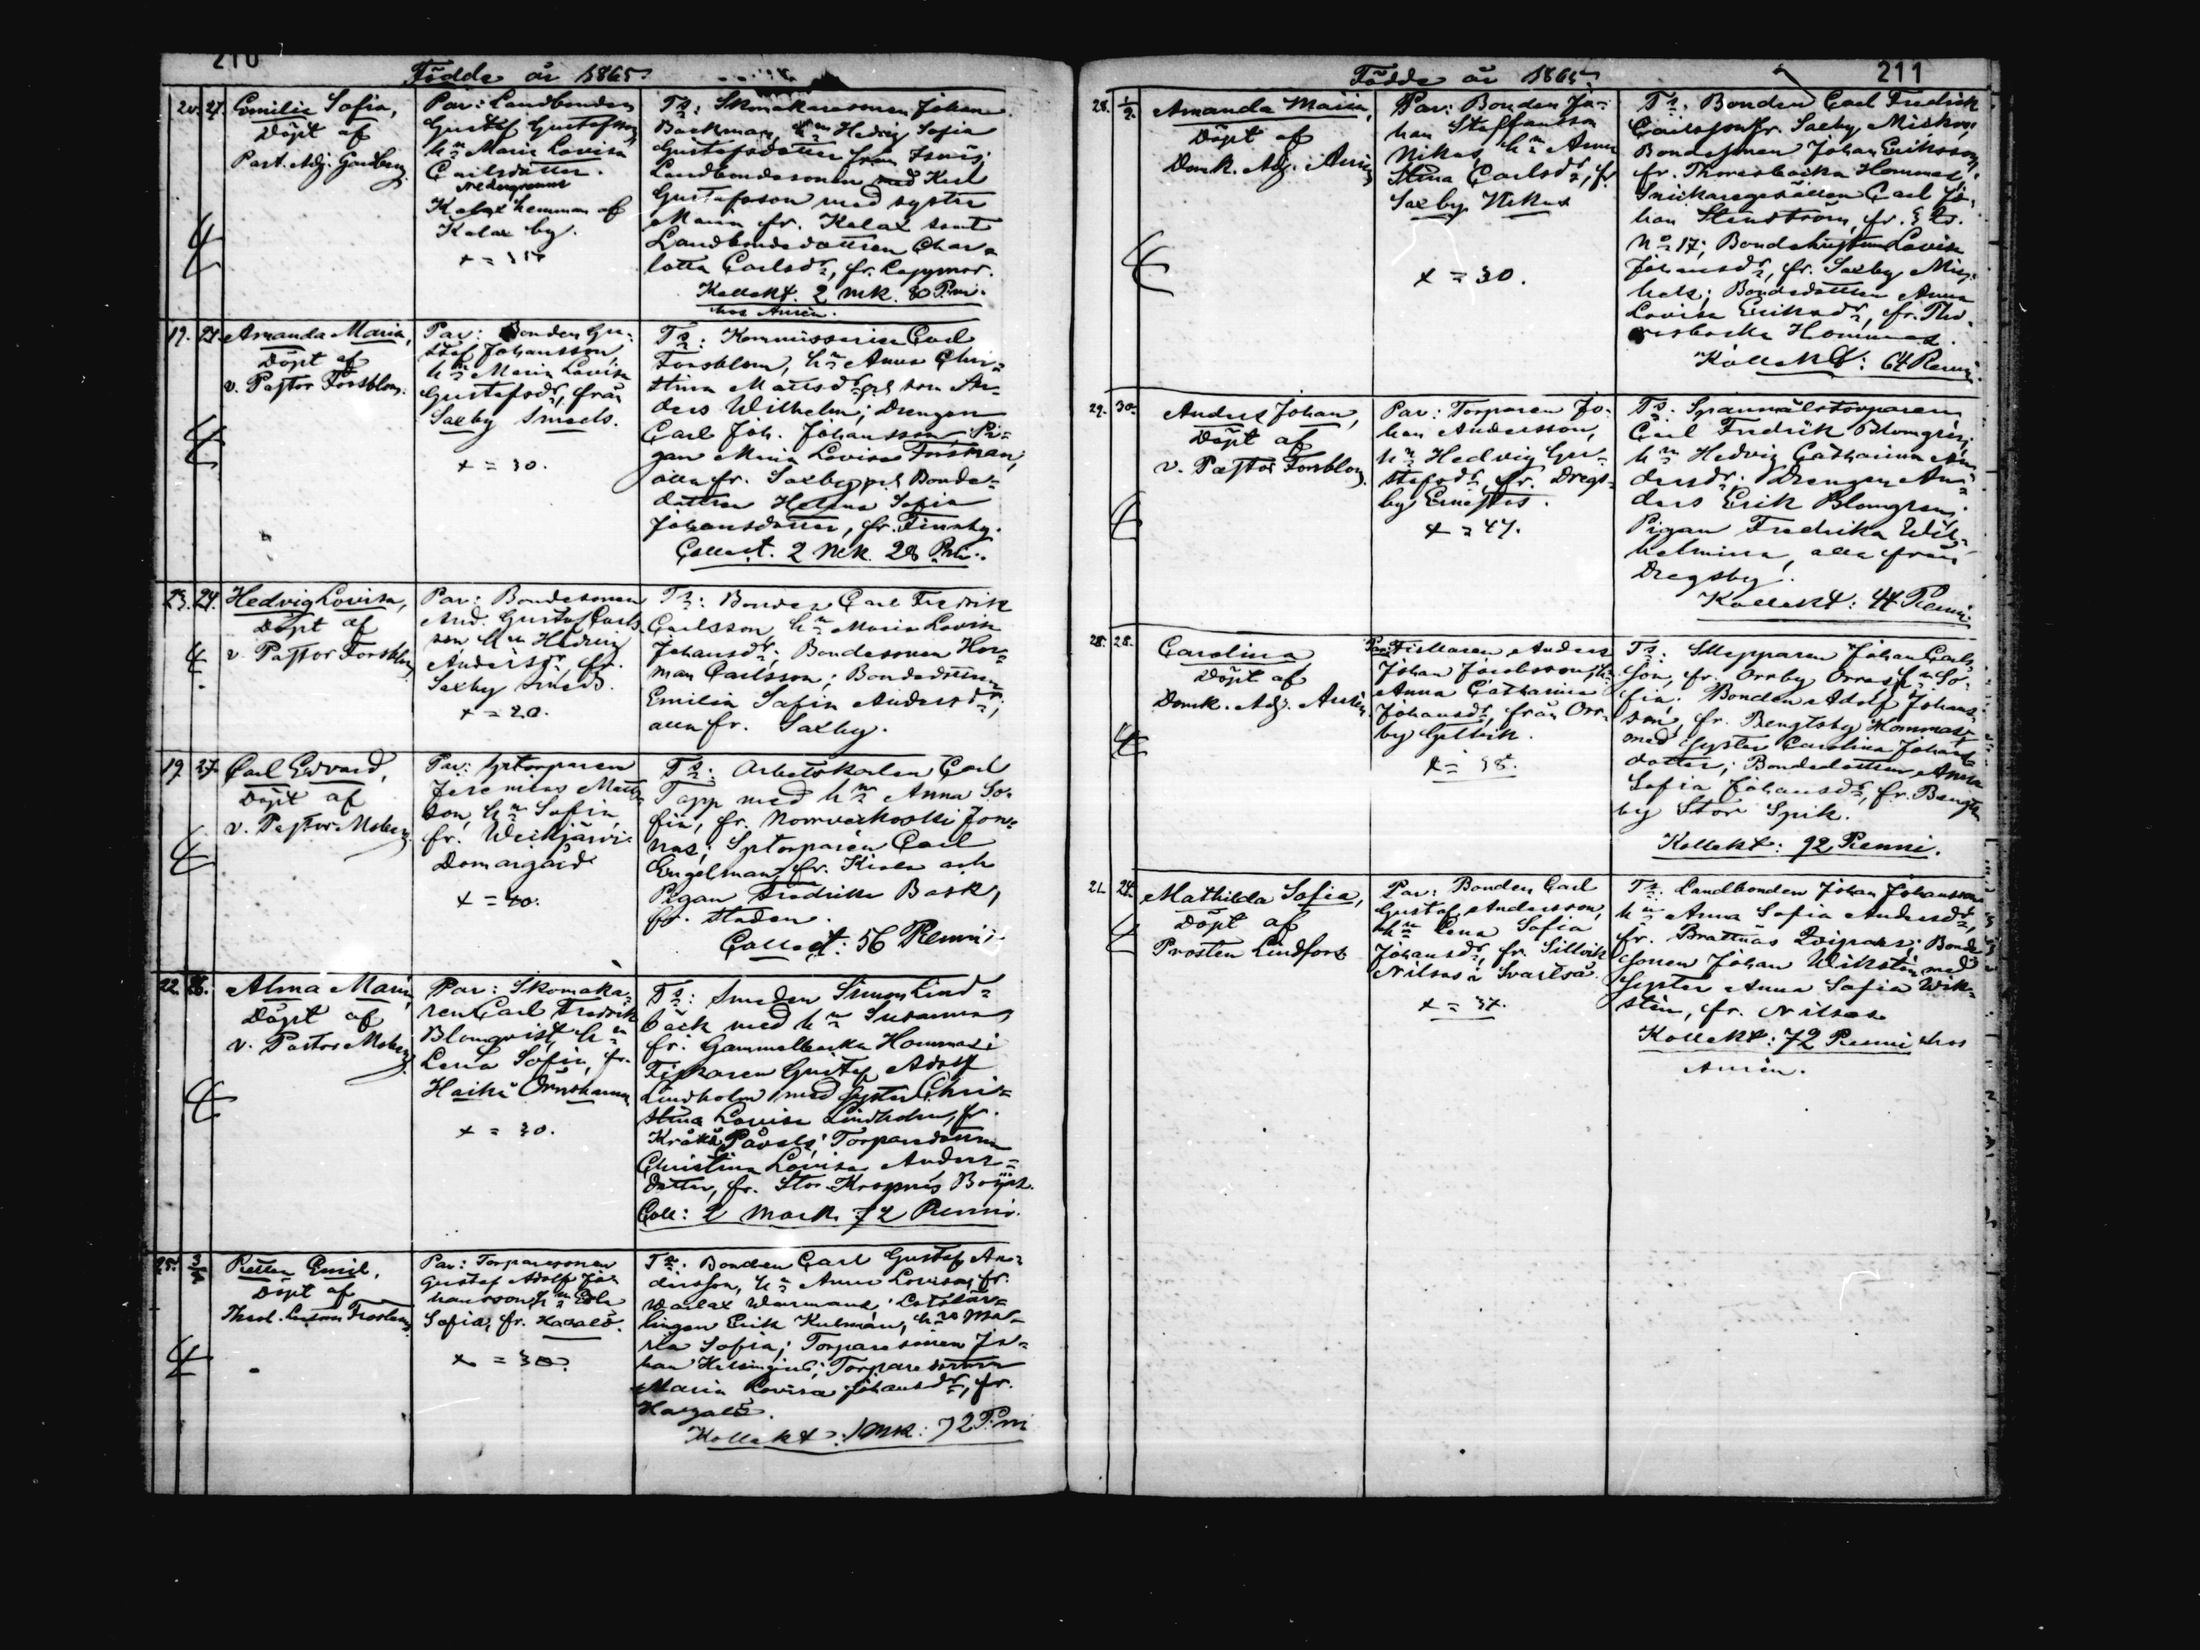 210
Födde år 1865.
20. 27. Emilia Sofia,
Döpt af
Past. Adj.
Par: Landbonden
Gustaf Gustafsson,
hn Maria Lovisa
Carlsdotter.
Kalax hemman af
Kalax by.
Ts: Skomakaresonen Johan
Backman, hn Hedvig Sofia
Gustafsdotter från Isnäs;
Landbondesonen Karl
Gustafsson med syster
Maria fr. Kalax samt
Landbondedottren Char=
lotta Carlsdr, fr.
Kollekt. 2 mk. 80 P:ni.
hos Aurén.
19. 27. Amanda Maria,
Döpt af
v. Pastor Forsblom.
Par: Bonden Gu=
staf Johansson,
hn Maria Lovisa
Gustafsdr, från
Saxby Smeds.
x = 30.
Ts: Kommissarien Carl
Forsblom, hn Anna Chri=
stina Mattsdr och son An=
ders Wilhelm; Drengen
Carl Joh. Johansson Pi=
gan Maria Lovisa Forsman,
alla fr. Saxby och Bonde=
dottren Helena Sofia
Johansdotter, fr. Finnby.
Collect. 2 mk. 28 P:ni.
23. 27. Hedvig Lovisa,
Döpt af
v. Pastor Forsblom
Par: Bondesonen
And. Gustaf Carls=
son, hn Hedvig
Andersdr, fr.
Saxby Smeds.
x = 20.
Ts: Bonden Carl Fredrik
Carlsson, hn Maria Lovisa
Johansdr; Bondesonen Her=
man Carlsson; Bondedottren
Emilia Sofia Andersdr,
alla fr. Saxby.
19. 27. Carl Edvard,
Döpt af
v. Pastor Moberg.
Par: Sptorparen
Jeremias Matts=
son, hn Sofia,
fr. Weckjärvi
Domargård
x = 40.
Ts: Arbetskarlen Carl
Tapp med hn Anna So=
fia, fr. Norrveckoski Jon=
nas; Sptorparen Carl
Engelman, fr. Kiala och
Pigan Fredrika Bask,
fr. staden.
Collect: 56 Penni.
22. Alma Maria
Döpt af
v. Pastor Moberg.
Par: Skomaka=
ren Carl Fredrik
Blomqvist, hn
Lena Sofia, fr.
Haikå Örnshamn
x = 30.
Ts: Smeden Simon Lind=
bäck med hn Susanna
fr. Gammelbacka Hommas;
Fiskaren Gustaf Adolf
Lindholm med syster Chri=
stina Lovisa Lindholm, fr.
Kråkö Påvals; Torparedottren
Christina Lovisa Anders=
dotter, fr. Stor Kroknäs
Coll: 2 Mark 72 Penni.
25. 3/2 Emil,
Döpt af
Par: Torparesonen
Gustaf Adolf Jo=
hansson, hn Edla
Sofia, fr.
x = 30.
Ts: Bonden Carl Gustaf An=
dersson, hn Anna Lovisa, fr.
Warlax Warmans; Lotslär=
lingen Erik Kulman, hn Ma=
ria Sofia; Torparesonen Jo=
han Helsingius; Torparedottren
Maria Lovisa Johansdr, fr.
Kollekt: 1 mk: 72 P:ni
211
Födde år 1865.
28. 1/2. Amanda Maria,
Döpt af
Domk. Adj. Aurén
Par: Bonden Jo=
han Staffansson
Nikus, hn Anna
Stina Carlsdr, fr.
Saxby Nikus
x = 30.
Ts: Bonden Carl Fredrik
Carlsson fr. Saxby
Bondesonen Johan Eriksson,
fr. Thorsbacka Hommas;
Snickaregesällen Carl Jo=
han Stenström, fr.
No 17; Bondehustrun Lovisa
Johansdr, fr. Saxby Mic=
hels; Bondedottren Anna
Lovisa Eriksdr, fr. Tho=
rsbacka Hommas.
Kollekt: 64 Penni.
29. 30. Anders Johan,
Döpt af
v. Pastor Forsblom.
Par: Torparen Jo=
han Andersson,
hn Hedvig Gu=
stafsdr, fr. Drägs=
by
x = 47.
Ts: Spanmålstorparen
Carl Fredrik Blomgren;
hn Hedvig Catharina An=
dersdr; Drengen An=
ders Erik Blomgren;
Pigan Fredrika Wil=
helmina, alla från
Drägsby.
Kollekt: 44 Penni.
28. 28. Carolina
Döpt af
Domk. Adj. Aurén.
Par: Fiskaren Anders
Johan Jacobsson, hn
Anna Catharina
Johansdr, från Orr=
by
x = 38.
Ts: Skepparen Johan Carls=
son, fr. Orrby Orras, hn So=
fia; Bonden Adolf Johans=
son, fr. Bengtsby Hommas
med syster Carolina Johans=
dotter; Bondedottren Anna
Sofia Johansdr, fr. Bengts
by Stor Spik.
Kollekt: 92 Penni.
21. 24. Mathilda Sofia,
Döpt af
Prosten Lindfors
Par: Bonden Carl
Gustaf Andersson,
hn Lena Sofia
Johansdr, fr. Sillvik
Nilsas i Svartså
x = 37.
Ts: Landbonden Johan Johansson
hn Anna Sofia Andersdr,
fr. Brattnäs Bonde
sonen Johan Wikstén med
syster Anna Sofia Wik=
stén, fr. Nilsas
Kollekt: 72 Penni hos
Aurén.